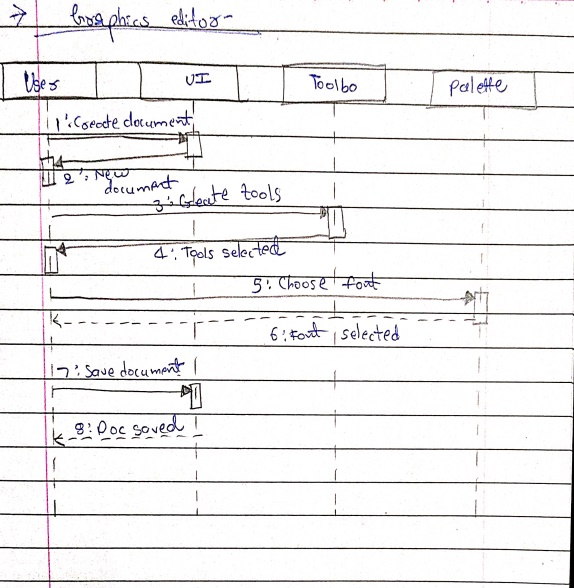 → Graphics editor-
User UI Toolbo palette
1: Create document
2: New
document
3: Create tools
4: Tools selected
5: Choose font
6: Font selected
7: Save document
8: Doc saved